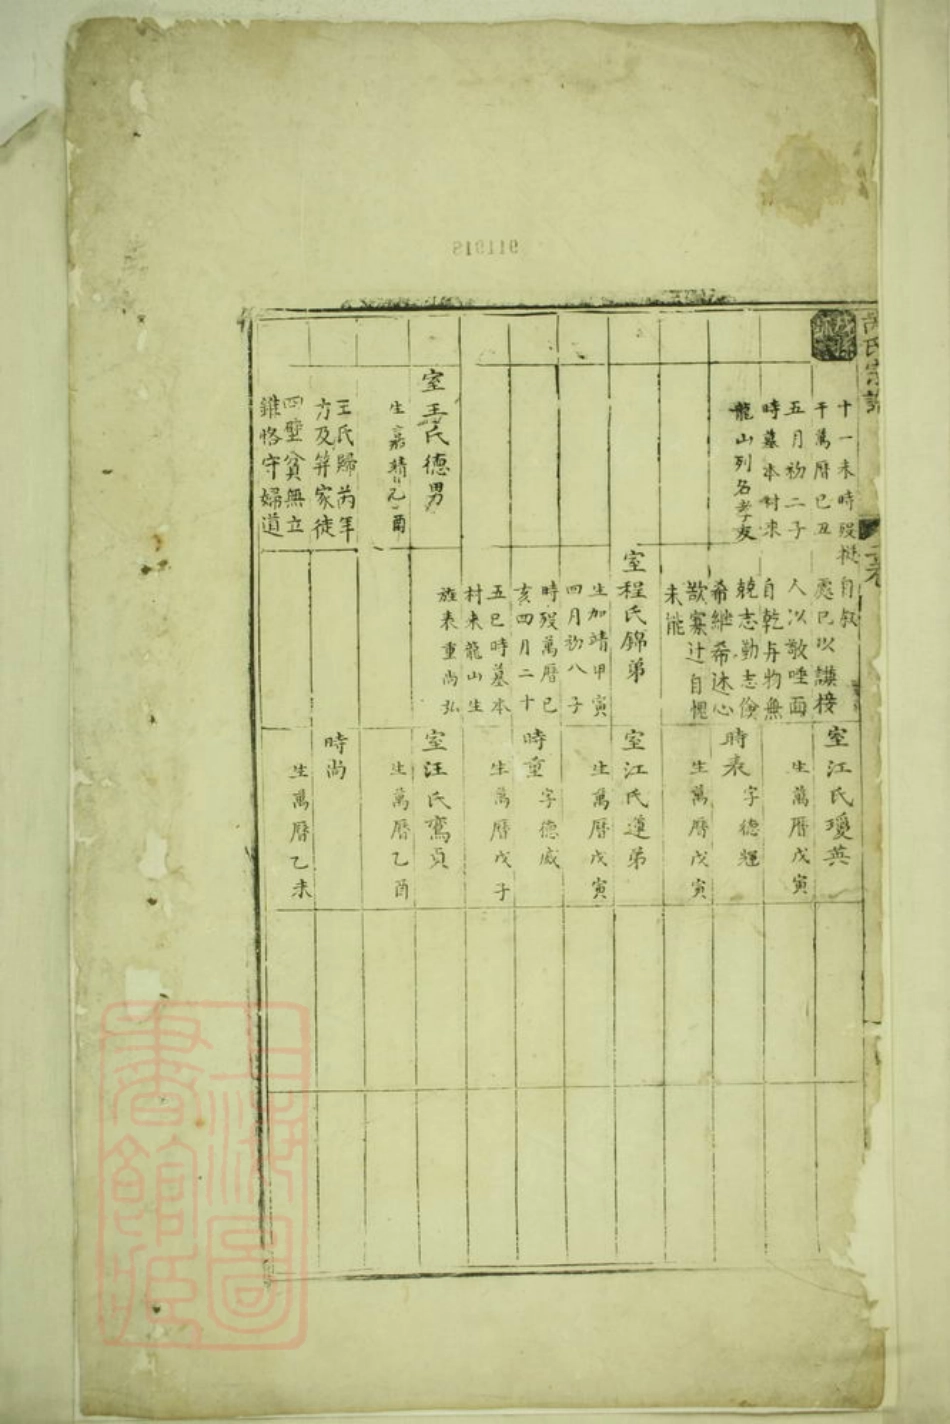 十一未時歿
于萬曆已丑
五月初二子
時墓本村來
龍山列名孝友
室王氏德男
生嘉靖元酉
王氏歸芮年
方及笄家徒
四壁貧無立
錐恪守婦道
自叙
處已以謙接
人以敬唾面
自乾与物無
兢志勤志儉
未能
室程氏錦弟
生加靖甲寅
四月初八子
時歿萬曆已
亥四月二十
五巳時墓本
村來龍山生
旌表重尚弘
室江氏瓊英
生萬曆戊寅
時表字德輝
生萬曆戊寅
室江氏蓮弟
生萬曆戊寅
時重字德威
生萬曆戊子
室汪氏鸞貞
生萬曆乙酉
時尚
生萬曆乙未
911918
上海圖
書館藏